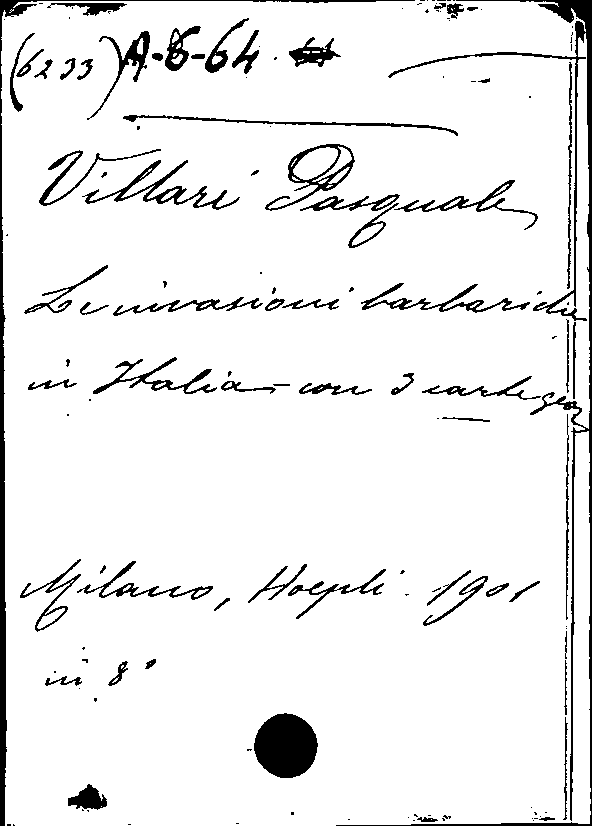 (6233) A-6-64
Villari Pasquale
Le invasioni barbariche
in Italia - con 3 carte geog
Milano, Hoepli. 1901
in 8°